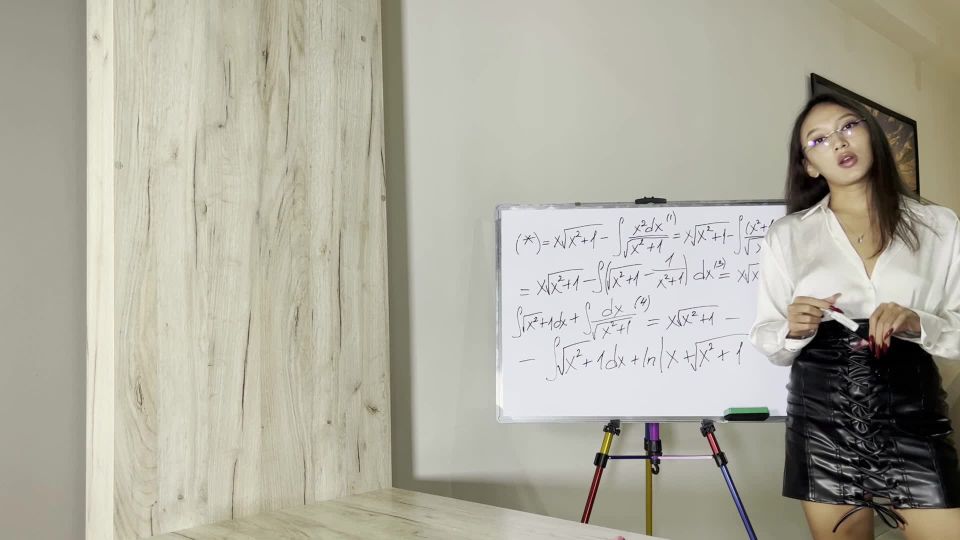 (*) = x√x²+1 - ∫ x²dx/√x²+1 (1) = x√x²+1 - ∫ (x²+1
= x√x²+1 - ∫(√x²+1 - 1/x²+1) dx (3) = x√x
∫√x²+1dx + ∫ dx/√x²+1 (4) = x√x²+1 -
- ∫√x²+1dx + ln|x+√x²+1